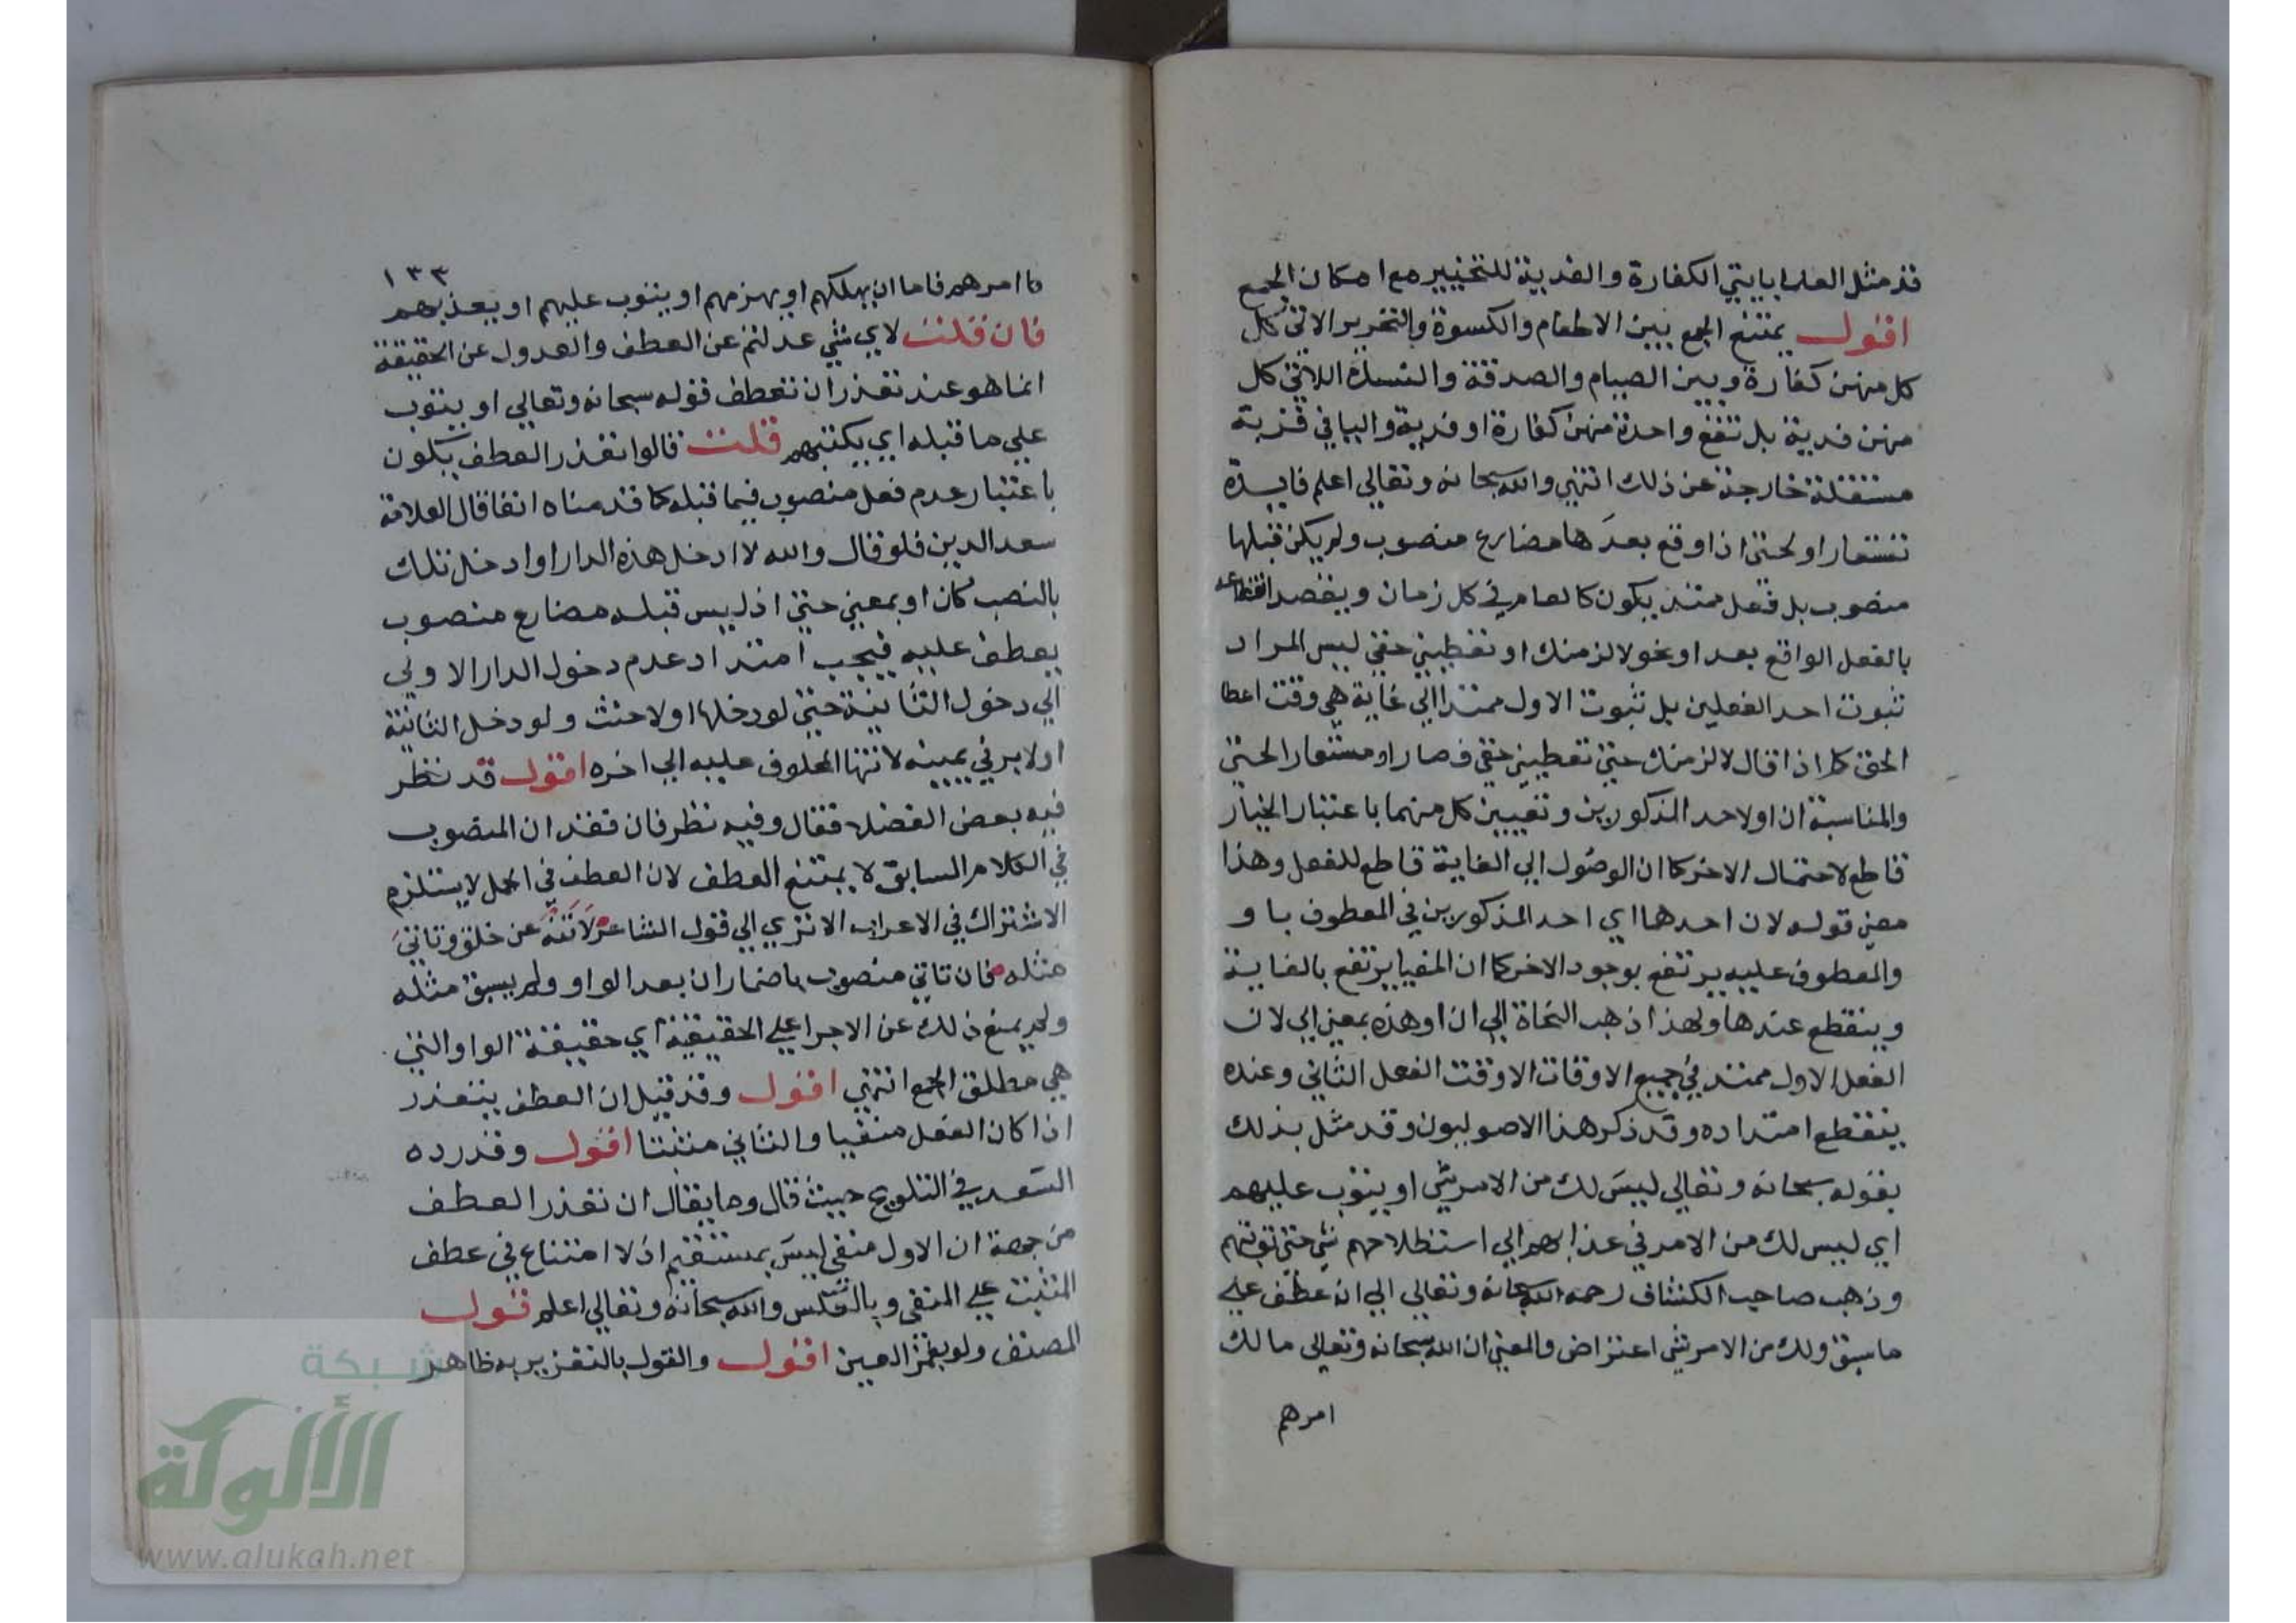 قد مثل العلما بايتي الكفارة والفدية للتخيير مع امكان الجمع
اقول يمتنع الجمع بين الاطعام والكسوة والتحرير الاتي كل
كل منهن كفارة وبين الصيام والصدقة والنسك اللاتي كل
منهن فدية بل تقع واحدة منهن كفارة او فدية والباقي قربة
مستقلة خارجة عن ذلك انتهي والله سبحانه وتعالي اعلم فايدة
تستعار او لحتي اذا وقع بعدها مضارع منصوب ولم يكن قبلها
منصوب بل فعل ممتد يكون كالعام في كل زمان ويقصد انقطاعه
بالفعل الواقع بعد او نحو لالزمنك او تعطيني حقي ليس المراد
ثبوت احد الفعلين بل ثبوت الاول ممتدا الي غاية هي وقت اعطا
الحق كما اذا قال لالزمنك حتي تعطيني حقي فصار او مستعارا لحتي
والمناسبة ان او لاحد المذكورين وتعيين كل منهما باعتبار الخيار
قاطع لاحتمال الاخر كما ان الوصول الي الغاية قاطع للفعل وهذا
معني قوله لان احدهما اي احد المذكورين في المعطوف باو
والمعطوف عليه يرتفع بوجود الاخر كما ان المغيا يرتفع بالغاية
وينقطع عندها ولهذا ذهب النحاة الي ان او هذه بمعني الي لان
الفعل الاول ممتد في جميع الاوقات الا وقت الفعل الثاني وعنده
ينقطع امتداده وقد ذكر هذا الاصوليون وقد مثل بذلك
بقوله سبحانه وتعالي ليس لك من الامر شي او يتوب عليهم
اي ليس لك من الامر في عذابهم الي استظلاحهم شي حتي توبتهم
وذهب صاحب الكشاف رحمه الله سبحانه وتعالي الي انه عطف علي
ما سبق ولك من الامر شي اعتراض والمعني ان الله سبحانه وتعالي مالك
امرهم
١٣٣
ما امرهم فاما ان يهلكهم او يهزمهم او يتوب عليهم او يعذبهم
فان قلت لاي شي عدلتم عن العطف والعدول عن الحقيقة
انما هو عند تعذر ان تعطف قوله سبحانه وتعالي او يتوب
علي ما قبله اي يكبتهم قلت قالوا تعذر العطف يكون
باعتبار عدم فعل منصوب فيما قبله كما قدمناه انفا قال العلامة
سعد الدين فلو قال والله لا ادخل هذه الدار او ادخل تلك
بالنصب كان او بمعني حتي اذ ليس قبله مضارع منصوب
يعطف عليه فيجب امتداد عدم دخول الدار الاولي
الي دخول الثانية حتي لو دخلها اولا حنث ولو دخل الثانية
اولا بر في يمينه لانتها المحلوف عليه الي اخره اقول قد نظر
فيه بعض الفضلا فقال وفيه نظر فان فقدان المنصوب
في الكلام السابق لا يمتنع العطف لان العطف في الجمل لا يستلزم
الاشتراك في الاعراب الا تري الي قول الشاعر لا تنه عن خلق وتاتي
مثله فان تاتي منصوب باضمار ان بعد الواو ولم يسبق مثله
ولم يمنع ذلك عن الاجرا علي الحقيقة اي حقيقة الواو التي
هي مطلق الجمع انتهي اقول وقد قيل ان العطف يتعذر
اذا كان الفعل منفيا والثاني مثبتا اقول وقد رده
السعد في التلويح حيث قال وما يقال ان تعذر العطف
من جهة ان الاول منفي ليس بمستقيم اذ لا امتناع في عطف
المثبت علي المنفي وبالعكس والله سبحانه وتعالي اعلم قول
المصنف ولو بغمز العين اقول والقول بالتعزير به ظاهر
شبكة
الألوكة
www.alukah.net